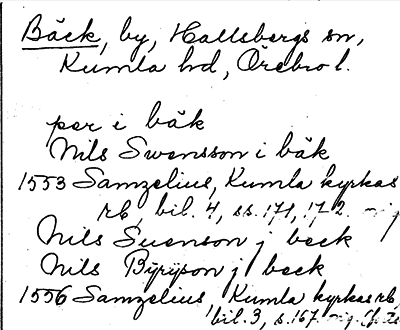 Bäck, by, Hallsbergs sn,
Kumla hd, Örebro l.
per i bäk
Nils Swensson i bäk
1553 Samzelius, Kumla kyrkas
rb, bil. 4, ss. 171, 172.
Nils Suenson j beck
Nils j beck
1556 Samzelius, Kumla kyrkas rb,
bil. 3, s. 167.